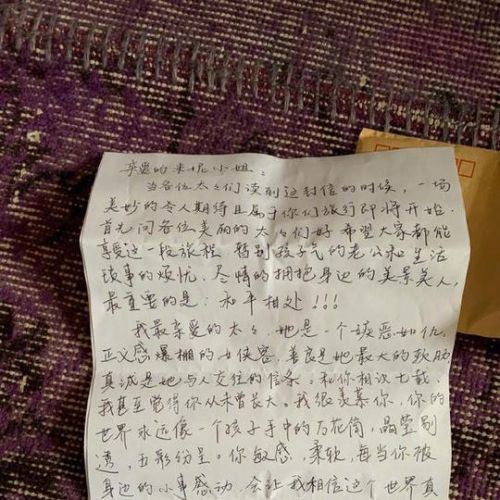 亲爱的米妮小姐：
当各位太太们读到这封信的时候，一场
美妙的令人期待且属于你们旅行即将开始.
首先问各位美丽的太太们好，希望大家都能
享受这一段旅程，暂别孩子气的老公和生活
琐事的烦忧，尽情的拥抱身边的美景美人，
最重要的是：和平相处！！！
我最亲爱的太太，她是一个嫉恶如仇，
正义感爆棚的女侠客，善良是她最大的软肋
真诚是她与人交往的信条，和你相识七载，
我甚至觉得你从未曾长大。我很羡慕你，你的
世界永远像一个孩子手中的万花筒，晶莹剔
透，五彩纷呈。你敏感，柔软，每当你被
身边的小事感动，会让我相信这个世界真